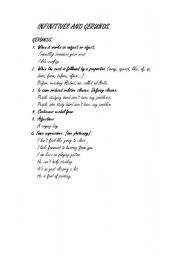 INFINITIVES AND GERUNDS.
GERUNDS.
1. When it works as subject or object.
Travelling broadens your mind
I like reading
2. When the verb is followed by a preposition
Before meeting Ana, we called at María
3. In some reduced relative clauses. Defining clauses.
People studying hard won't have any problem
People who study hard won't have any problem
4. Continuous verbal form
5. Adjectives
A crying boy
6. Some expressions.
I don't feel like going to class
I look forward to hearing from you
I am keen on playing guitar
He can't help stealing
It's no good sleeping a lot
He is fond of painting.